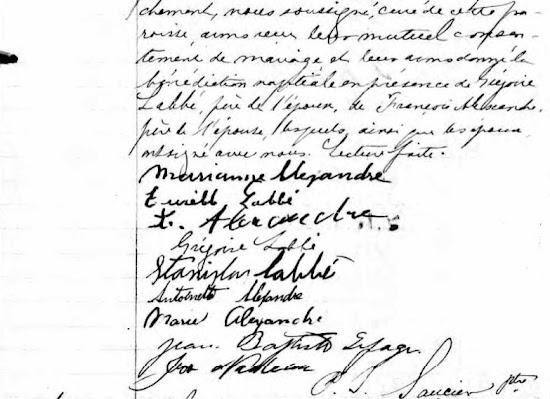 chement, nous soussigné, curé de cette pa-
roisse, avons reçu leur mutuel consen-
tement de mariage et leur avons donné la
bénédiction nuptiale en présence de Grégoire
Labbé, père de l'époux, de François Alexandre,
père de l'épouse, lesquels, ainsi que les époux,
ont signé avec nous. Lecture faite.
Marianne Alexandre
Labbé
F. Alexandre
Grégoire Labbé
Stanislas Labbé
Antoinette Alexandre
Marie Alexandre
Jean Baptiste
Saucier ptre